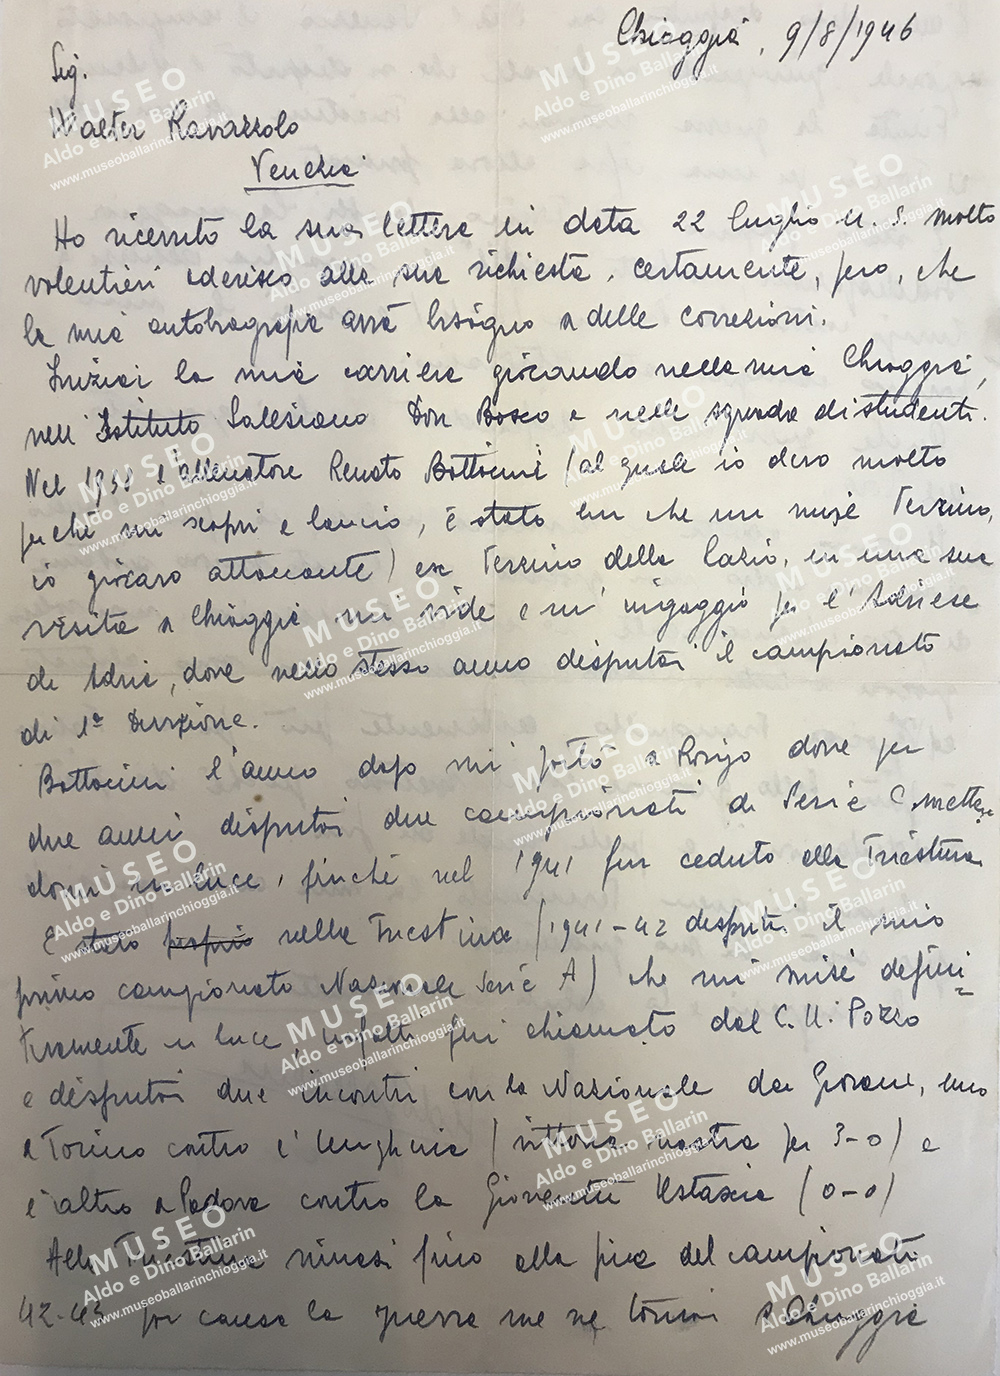 Chioggia, 9/8/1946
Sig.
Walter Ravazzolo
Venezia
Ho ricevuto la sua lettera in data 22 luglio u. s. molto
volentieri aderisco alla sua richiesta, certamente, però, che
la mia autobiografia avrà bisogno a delle correzioni.
Iniziai la mia carriera giocando nella mia Chioggia,
nell'Istituto Salesiano Don Bosco e nelle squadre di studenti.
Nel 1938 l'allenatore Renato Bottaccini (al quale io devo molto
perché mi scoprì e lanciò, è stato lui che mi mise Terzino,
io giocavo attaccante) ex Terzino della Lazio, in una sua
visita a Chioggia mi vide e m'ingaggiò per l'Adriese
di Adria, dove nello stesso anno disputai il campionato
di 1ª Divisione.
Bottaccini l'anno dopo mi portò a Rovigo dove per
due anni disputai due campionati di Serie C, metten
domi in luce, finché nel 1941 fui ceduto alla Triestina
E stato proprio nella Triestina (1941-42 disputai il mio
primo campionato Nazionale Serie A) che mi mise defini-
tivamente in luce, infatti fui chiamato dal C. U. Pozzo
e disputai due incontri con la Nazionale dei Giovani, uno
a Torino contro l'Ungheria (vittoria nostra per 3-0) e
l'altro a Padova contro la Gioventù Ustascia (0-0)
Alla Triestina rimasi fino alla fine del campionato
42-43 poi causa la guerra me ne tornai a Chioggia
MUSEO
Aldo e Dino Ballarin
www.museoballarinchioggia.it